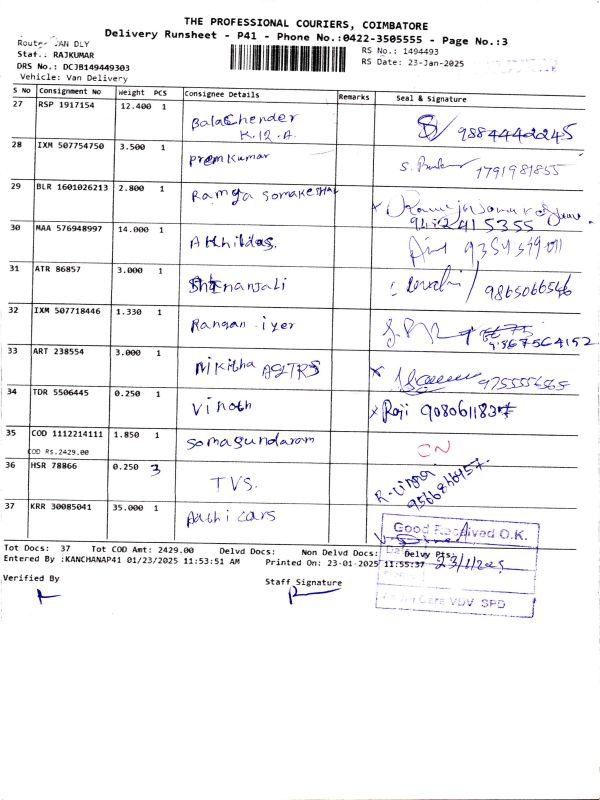 THE PROFESSIONAL COURIERS, COIMBATORE
Delivery Runsheet - P41 - Phone No.:0422-3505555 - Page No.:3
Route: VAN DLY
RS No.: 1494493
Staf.: RAJKUMAR
RS Date: 23-Jan-2025
DRS No.: DCJB149449303
Vehicle: Van Delivery
S No Consignment No Weight PCS Consignee Details Remarks Seal & Signature
27 RSP 1917154 12.400 1 Balachender
K.12.A.
28 IXM 507754750 3.500 1 Premkumar 1791981855
29 BLR 1601026213 2.800 1 Ramya
30 MAA 576948997 14.000 1 Akhildas
31 ATR 86857 3.000 1 9865066546
32 IXM 507718446 1.330 1 Rangan iyer
33 ART 238554 3.000 1 Nikitha
34 TDR 5506445 0.250 1 Vinoth x Raji 9080611837
35 COD 1112214111 1.850 1 Somasundaram CN
COD Rs.2429.00
36 HSR 78866 0.250 3 TVS.
37 KRR 30085041 35.000 1 Aathi cars
Good Received O.K.
Tot Docs: 37 Tot COD Amt: 2429.00 Delvd Docs: Non Delvd Docs: Delvy Pts:
Entered By :KANCHANAP41 01/23/2025 11:53:51 AM Printed On: 23-01-2025 11:55:37
Verified By Staff Signature
Cars VDV SPD